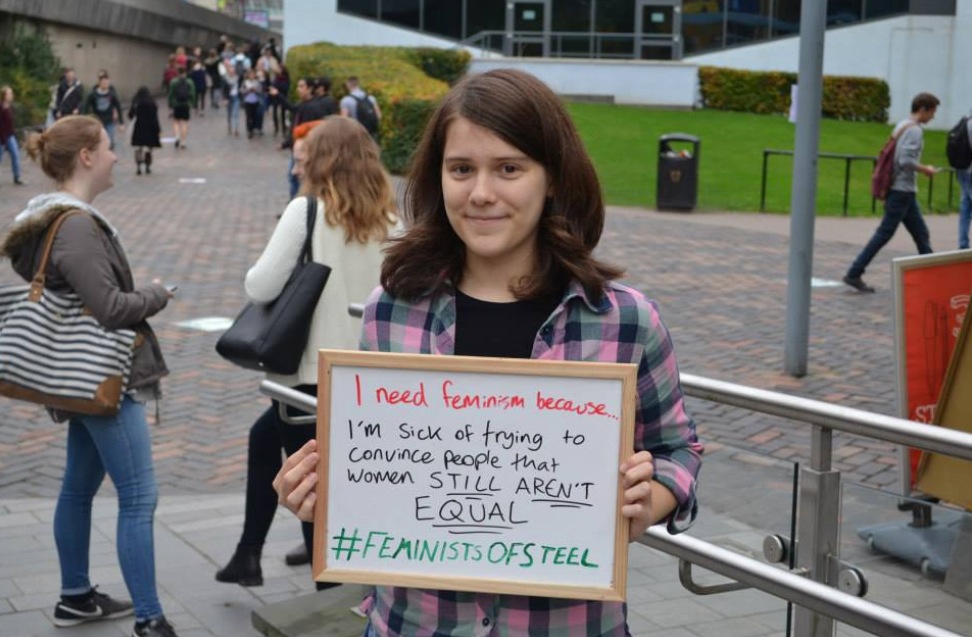 I need feminism because...
I'm sick of trying to
convince people that
women STILL AREN'T
EQUAL
#FEMINISTSOFSTEEL